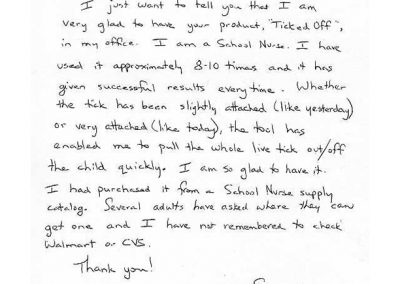 I just want to tell you that I am
very glad to have your product, "Ticked Off",
in my office. I am a School Nurse. I have
used it approximately 8-10 times and it has
given successful results every time. Whether
the tick has been slightly attached (like yesterday)
or very attached (like today), the tool has
enabled me to pull the whole live tick out/off
the child quickly. I am so glad to have it.
I had purchased it from a School Nurse supply
catalog. Several adults have asked where they can
get one and I have not remembered to check
Walmart or CVS.
Thank you!